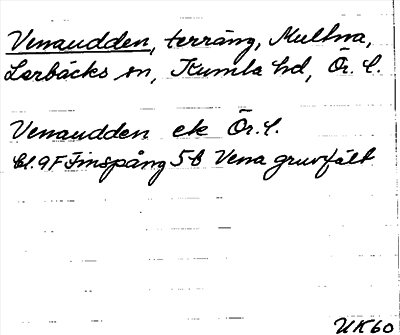 Venaudden, terräng, Mullna,
Lerbäcks sn, Kumla hd, Ör. l.
Venaudden ek Ör. l.
bl. 9F Finspång 5b Vena gruvfält
UK60